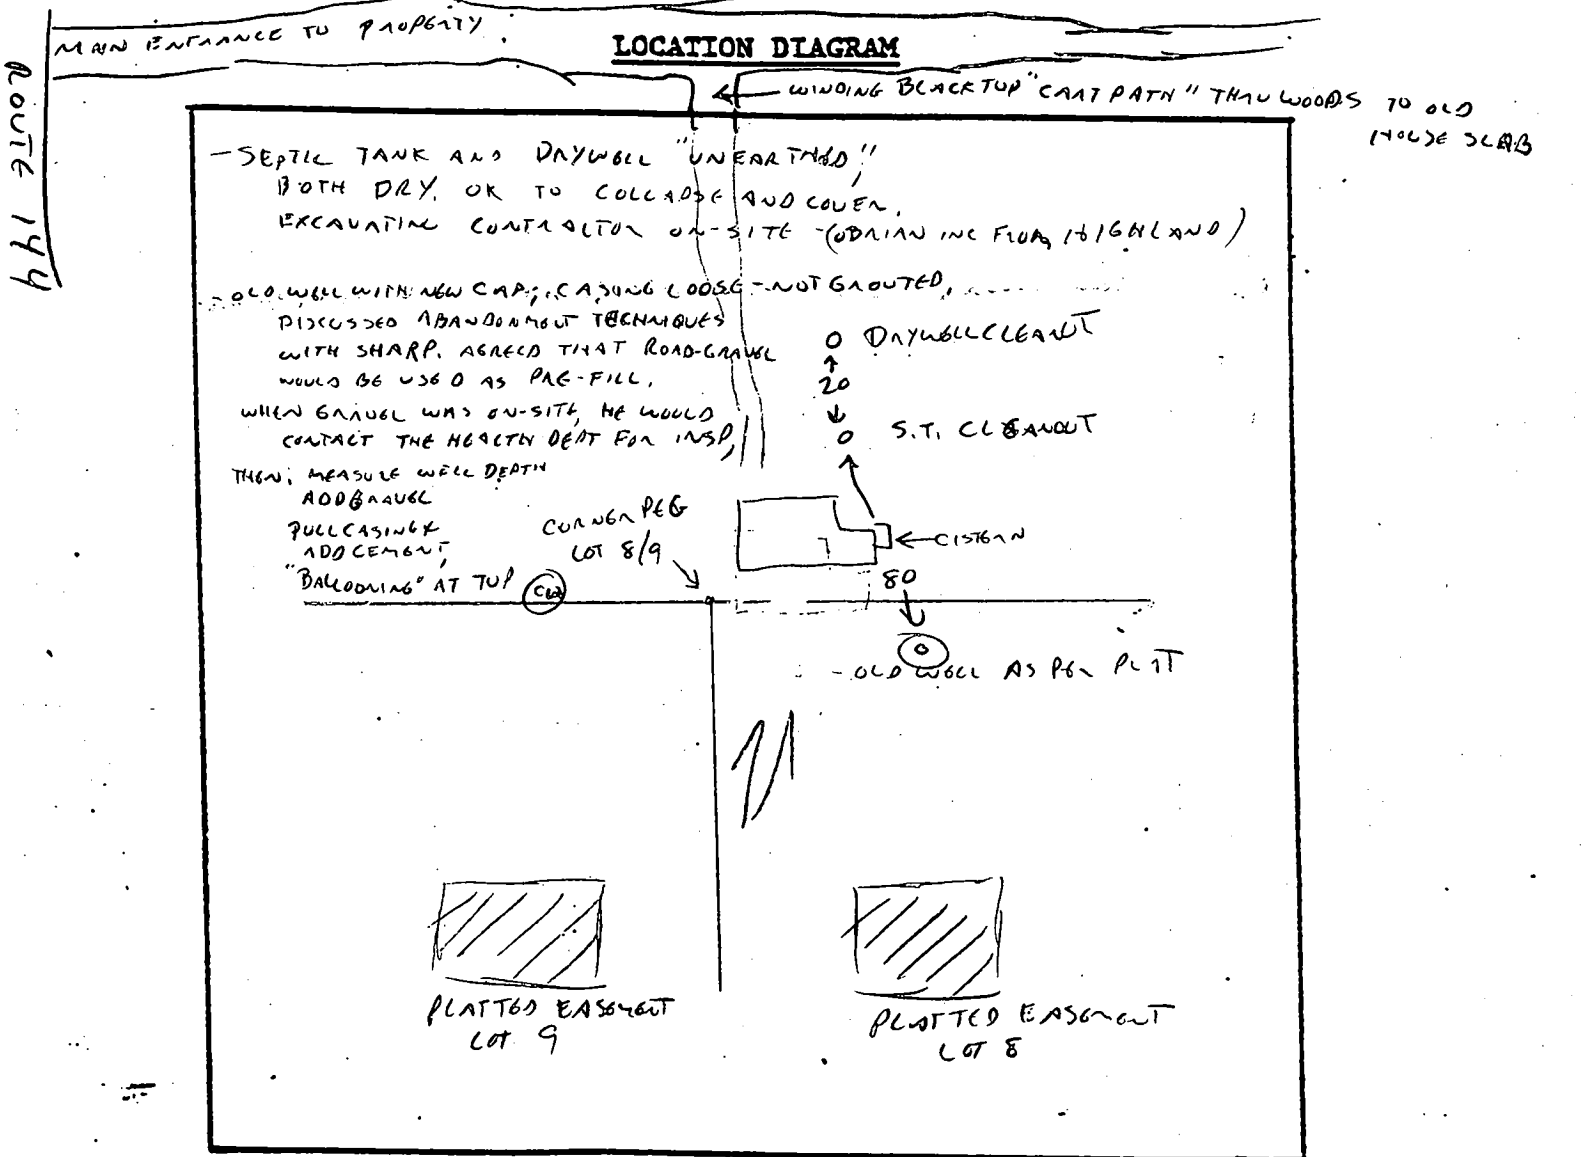 MAIN ENTRANCE TO PROPERTY
LOCATION DIAGRAM
ROUTE 144
WINDING BLACKTOP "CART PATH" THRU WOODS TO OLD
HOUSE SLAB
- SEPTIC TANK AND DRYWELL "UNEARTHED",
BOTH DRY. OK TO COLLAPSE AND COVER.
EXCAVATING CONTRACTOR ON-SITE - (OBRIAN INC FROM HIGHLAND)
- OLD WELL WITH NEW CAP; CASING LOOSE - NOT GROUTED,
DISCUSSED ABANDONMENT TECHNIQUES
WITH SHARP. AGREED THAT ROAD-GRAVEL
WOULD BE USED AS PRE-FILL.
WHEN GRAVEL WAS ON-SITE, HE WOULD
CONTACT THE HEALTH DEPT FOR INSP,
THEN; MEASURE WELL DEPTH
ADD GRAVEL
PULL CASING &
ADD CEMENT,
"BALLOONING" AT TOP
DRYWELL CLEANT
20
S.T. CLEANOUT
CORNER PEG
LOT 8/9
CISTERN
80
- OLD WELL AS PER PLAT
PLATTED EASEMENT
LOT 9
PLATTED EASEMENT
LOT 8